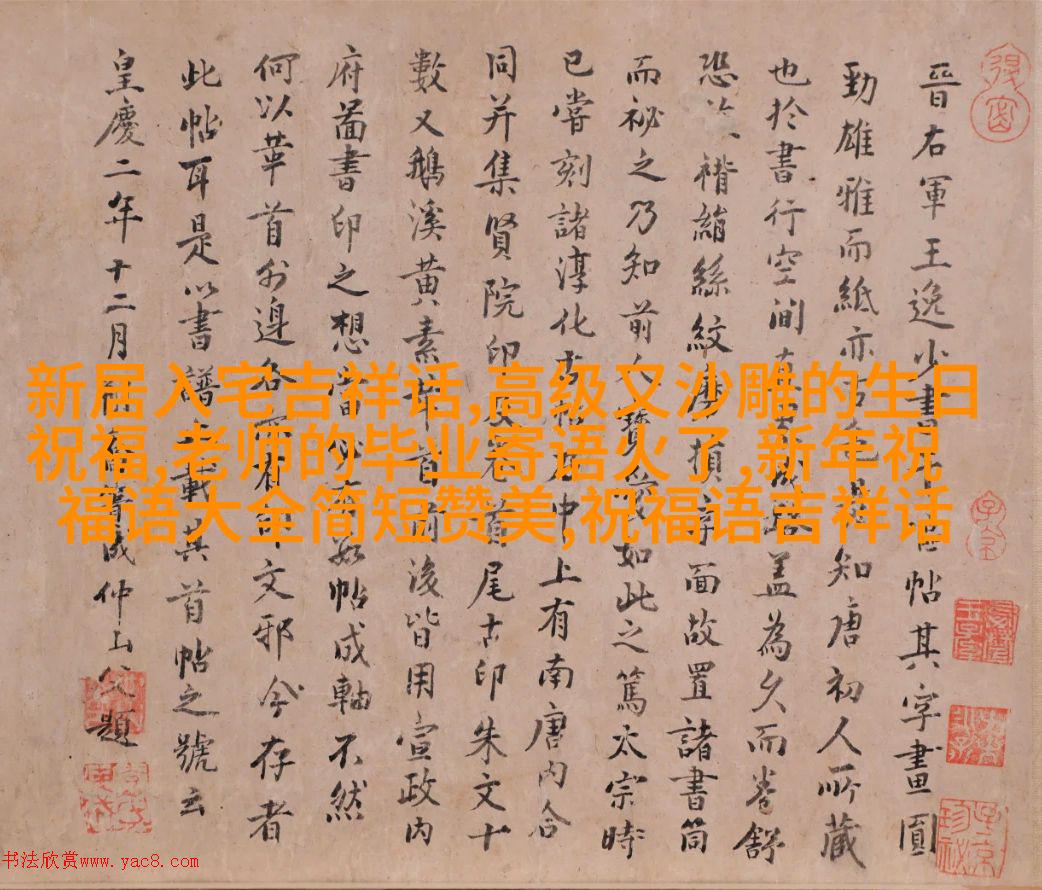 晉右軍王逸少書帖其字畫圓
勁雄雅而紙亦古色是知唐初人所藏
也於書行空間蓋為久而卷舒
恐褙絹絲紋摩損字面故置諸書筒
而祕之乃知前人寶愛如此之篤太宗時
已嘗刻諸淳化古帖中上有南唐內合
同并集賢院印及卷首尾古印朱文十
數又鵝溪黃素首前後皆用宣政內
府啚書印之想當必有帖成軸不然
何以華首外邊各有印文邪今存者
此帖耳是以書譜止載其首帖之號云
皇慶二年十二月成仲山父題
新居入宅吉祥话,高级又沙雕的生日
祝福,老师的毕业寄语火了,新年祝
福语大全简短赞美,祝福语吉祥话
书法欣赏www.yac8.com